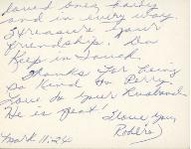 loved ones, daily
and in every way.
I treasure your
friendship. Do
Keep in Touch.
Thanks for being
so kind to
Love to your Husband
He is great!
I love you,
Mark 11:24